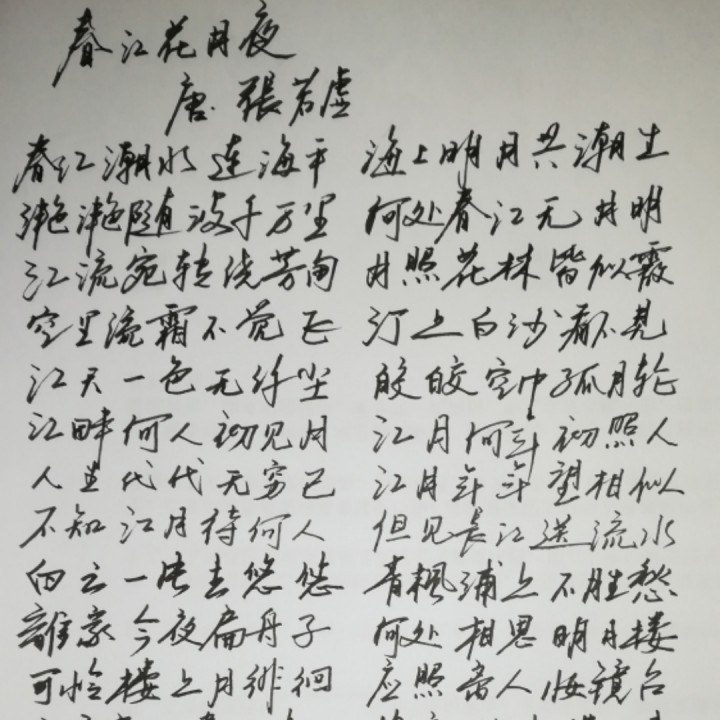 春江花月夜
唐.張若虚
春江潮水连海平 海上明月共潮生
滟滟随波千万里 何处春江无月明
江流宛转绕芳甸 月照花林皆似霰
空里流霜不觉飞 汀上白沙看不见
江天一色无纤尘 皎皎空中孤月轮
江畔何人初见月 江月何年初照人
人生代代无穷已 江月年年望相似
不知江月待何人 但见長江送流水
白云一片去悠悠 青枫浦上不胜愁
誰家今夜扁舟子 何处相思明月楼
可怜楼上月徘徊 应照离人妆镜台